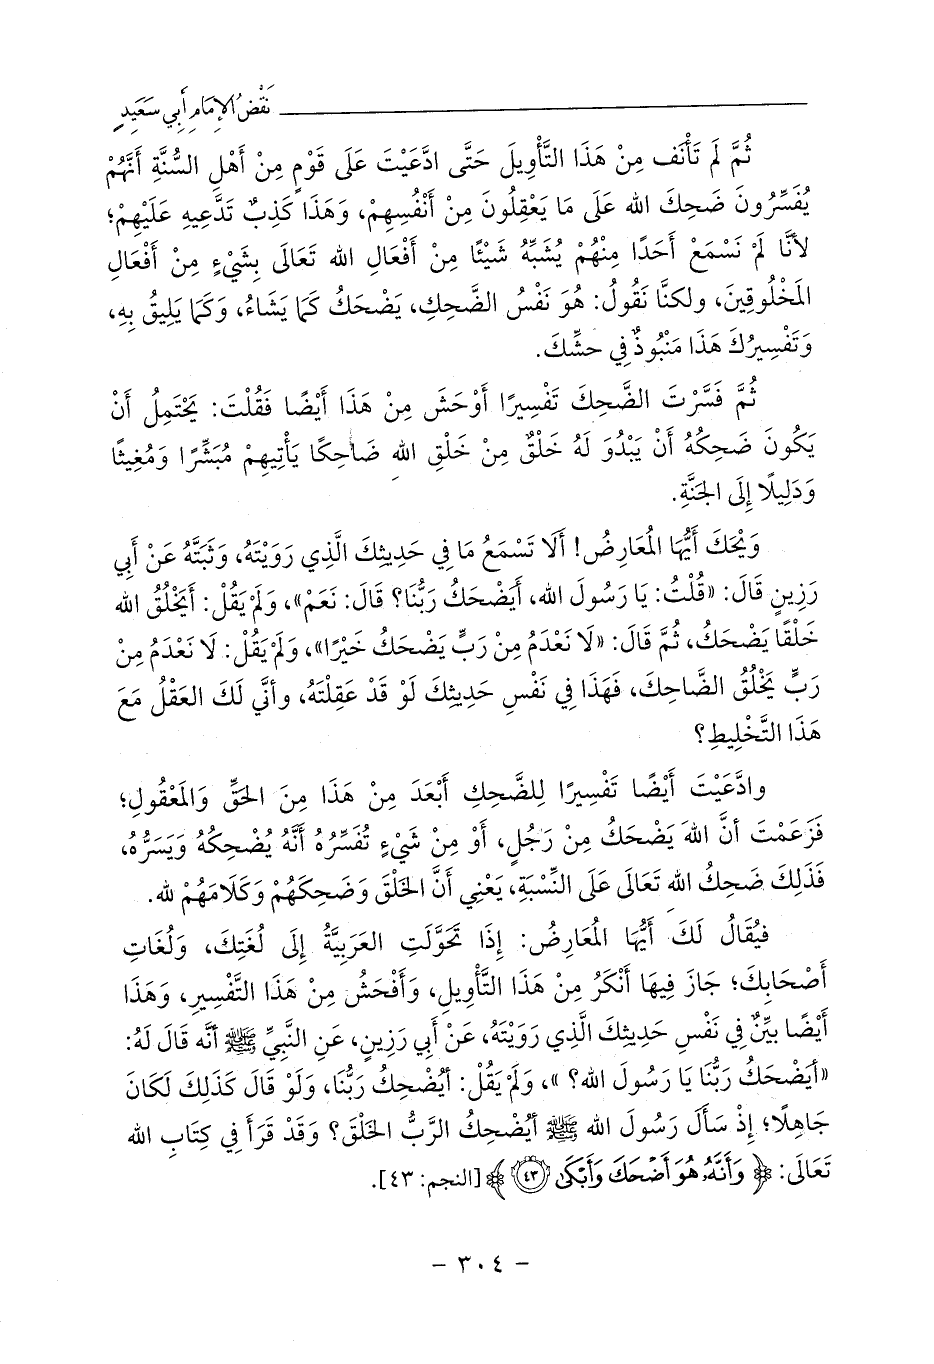 نَقْضُ الإِمَامِ أَبِي سَعِيدٍ
ثُمَّ لَمْ تَأْنَفْ مِنْ هَذَا التَّأْوِيلَ حَتَّى ادَّعَيْتَ عَلَى قَوْمٍ مِنْ أَهْلِ السُّنَّةِ أَنَّهُمْ
يُفَسِّرُونَ ضَحِكَ الله عَلَى مَا يَعْقِلُونَ مِنْ أَنْفُسِهِمْ، وَهَذَا كَذِبٌ تَدَّعِيهِ عَلَيْهِمْ؛
لأنَّا لَمْ نَسْمَعْ أَحَدًا مِنْهُمْ يُشَبِّهُ شَيْئًا مِنْ أَفْعَالِ الله تَعَالَى بِشَيْءٍ مِنْ أَفْعَالِ
المَخْلُوقِينَ، ولكنَّا نَقُولُ: هُوَ نَفْسُ الضَّحِكِ، يَضْحَكُ كَمَا يَشَاءُ، وَكَمَا يَلِيقُ بِهِ،
وَتَفْسِيرُكَ هَذَا مَنْبُوذٌ فِي حشِّكَ.
ثُمَّ فَسَّرْتَ الضَّحِكَ تَفْسِيرًا أَوْحَشَ مِنْ هَذَا أَيْضًا فَقُلْتَ: يَحْتَمِلُ أَنْ
يَكُونَ ضَحِكُهُ أَنْ يَبْدُوَ لَهُ خَلْقٌ مِنْ خَلْقِ الله ضَاحِكًا يَأْتِيهِمْ مُبَشِّرًا وَمُغِيثًا
وَدَلِيلًا إِلَى الجَنَّةِ.
وَيْحَكَ أَيُّهَا المُعَارِضُ! أَلَا تَسْمَعُ مَا فِي حَدِيثِكَ الَّذِي رَوَيْتَهُ، وَثَبَتَّهُ عَنْ أَبِي
رَزِينٍ قَالَ: «قُلْتُ: يَا رَسُولَ الله، أَيَضْحَكُ رَبُّنَا؟ قَالَ: نَعَمْ»، وَلَمْ يَقُلْ: أَيَخْلُقُ الله
خَلْقًا يَضْحَكُ، ثُمَّ قَالَ: «لَا نَعْدَمُ مِنْ رَبٍّ يَضْحَكُ خَيْرًا»، وَلَمْ يَقُلْ: لَا نَعْدَمُ مِنْ
رَبٍّ يَخْلُقُ الضَّاحِكَ، فَهَذَا فِي نَفْسِ حَدِيثِكَ لَوْ قَدْ عَقِلْتَهُ، وأنَّي لَكَ العَقْلُ مَعَ
هَذَا التَّخْلِيطِ؟
وادَّعَيْتَ أَيْضًا تَفْسِيرًا لِلضَّحِكِ أَبْعَدَ مِنْ هَذَا مِنَ الحَقِّ وَالمَعْقُولِ؛
فَزَعَمْتَ أنَّ اللهَ يَضْحَكُ مِنْ رَجُلٍ، أَوْ مِنْ شَيْءٍ تُفَسِّرُهُ أَنَّهُ يُضْحِكُهُ وَيَسَرُّهُ،
فَذَلِكَ ضَحِكُ الله تَعَالَى عَلَى النِّسْبَةِ، يَعْنِي أَنَّ الخَلْقَ وَضَحِكَهُمْ وَكَلَامَهُمْ لله.
فيُقَالُ لَكَ أَيُّهَا المُعَارِضُ: إِذَا تَحَوَّلَتِ العَرَبِيَّةُ إِلَى لُغَتِكَ، وَلُغَاتِ
أَصْحَابِكَ؛ جَازَ فِيهَا أَنْكَرُ مِنْ هَذَا التَّأْوِيلِ، وَأَفْحَشُ مِنْ هَذَا التَّفْسِيرِ، وَهَذَا
أَيْضًا بيِّنٌ فِي نَفْسِ حَدِيثِكَ الَّذِي رَوَيْتَهُ، عَنْ أَبِي رَزِينٍ، عَنِ النَّبِيِّ ﷺ أنَّه قَالَ لَهُ:
«أيَضْحَكُ رَبُّنَا يَا رَسُولَ الله؟ »، وَلَمْ يَقُلْ: أيُضْحِكُ رَبُّنَا، وَلَوْ قَالَ كَذَلِكَ لَكَانَ
جَاهِلًا؛ إِذْ سَأَلَ رَسُولَ الله ﷺ أيُضْحِكُ الرَّبُّ الخَلْقَ؟ وَقَدْ قَرَأَ فِي كِتَابِ الله
تَعَالَى: ﴿ وَأَنَّهُۥ هُوَ أَضْحَكَ وَأَبْكَىٰ ٤٣ ﴾ [النجم: ٤٣].
- ٣٠٤ -